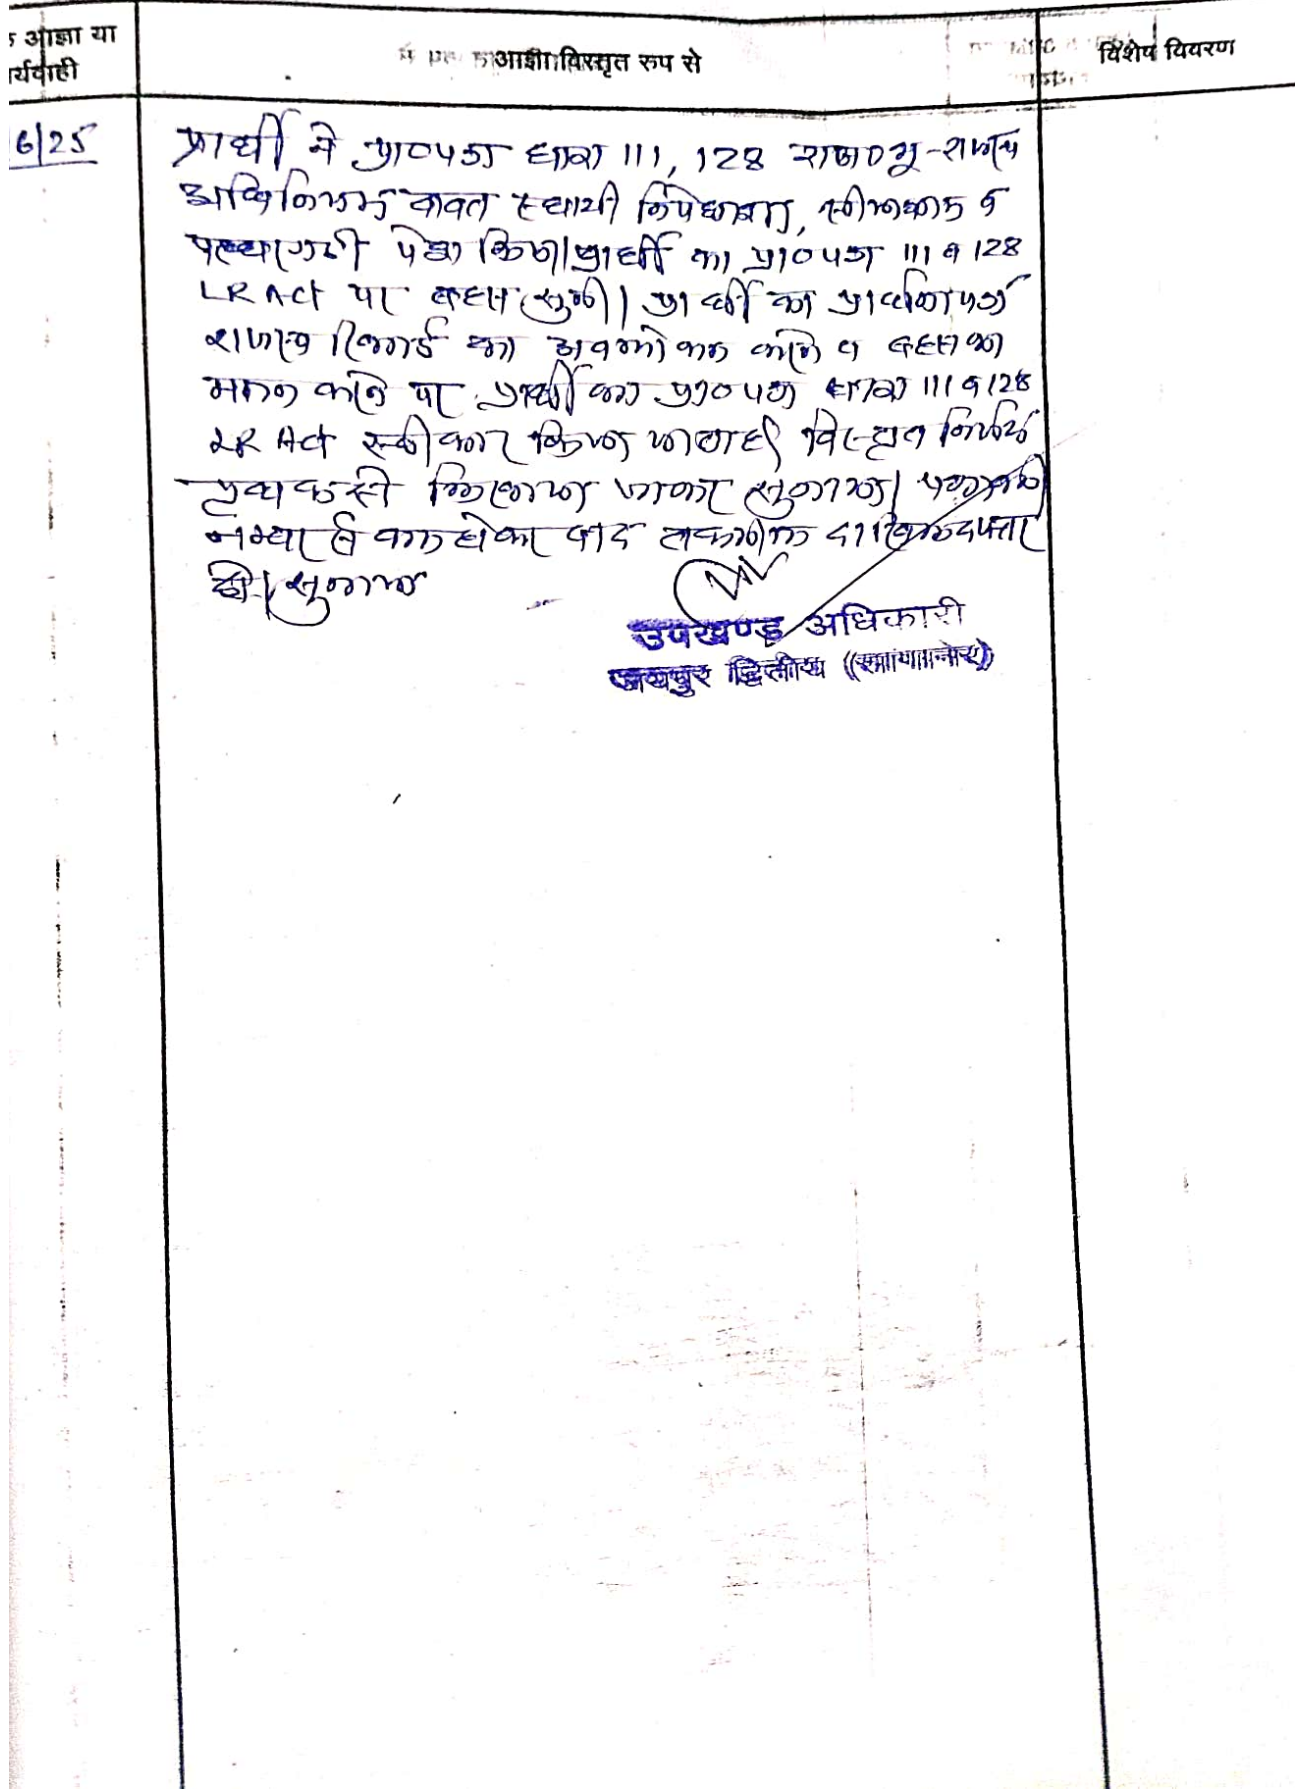 आज्ञा या
र्यवाही
आज्ञा विस्तृत रुप से
विशेष विवरण
6/25
प्रार्थी ने प्रा०पत्र धारा 111, 128 राज० भू-राजस्व
अधिनियम बाबत स्थायी निषेधाज्ञा, सीमाज्ञान व
पत्थरगढी पेश किया। प्रार्थी का प्रा० पत्र 111 व 128
LR Act पर बहस सुनी। प्रार्थी का प्रार्थना पत्र
राजस्व रिकार्ड का अवलोकन करने व बहस का
मनन करने पर प्रार्थी का प्रा० पत्र धारा 111 व 128
LR Act स्वीकार किया जाता है। विस्तृत निर्णय
पृथक से लिखाया जाकर सुनाया। पत्रावली
बाद तकमील दाखिल दफ्तर
हो। सुनाया
उपखण्ड अधिकारी
जयपुर द्वितीय (सांगानेर)